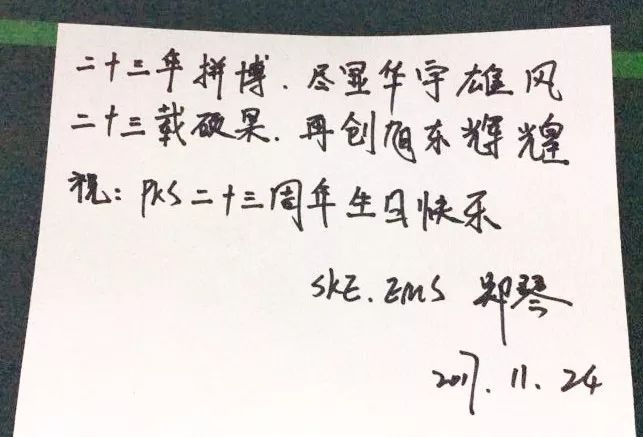 二十三年拼博.尽显华宇雄风
二十三载硕果.再创旭东辉煌
祝:PKS二十三周年生日快乐
SKE.EMS 郑琴
2017.11.24